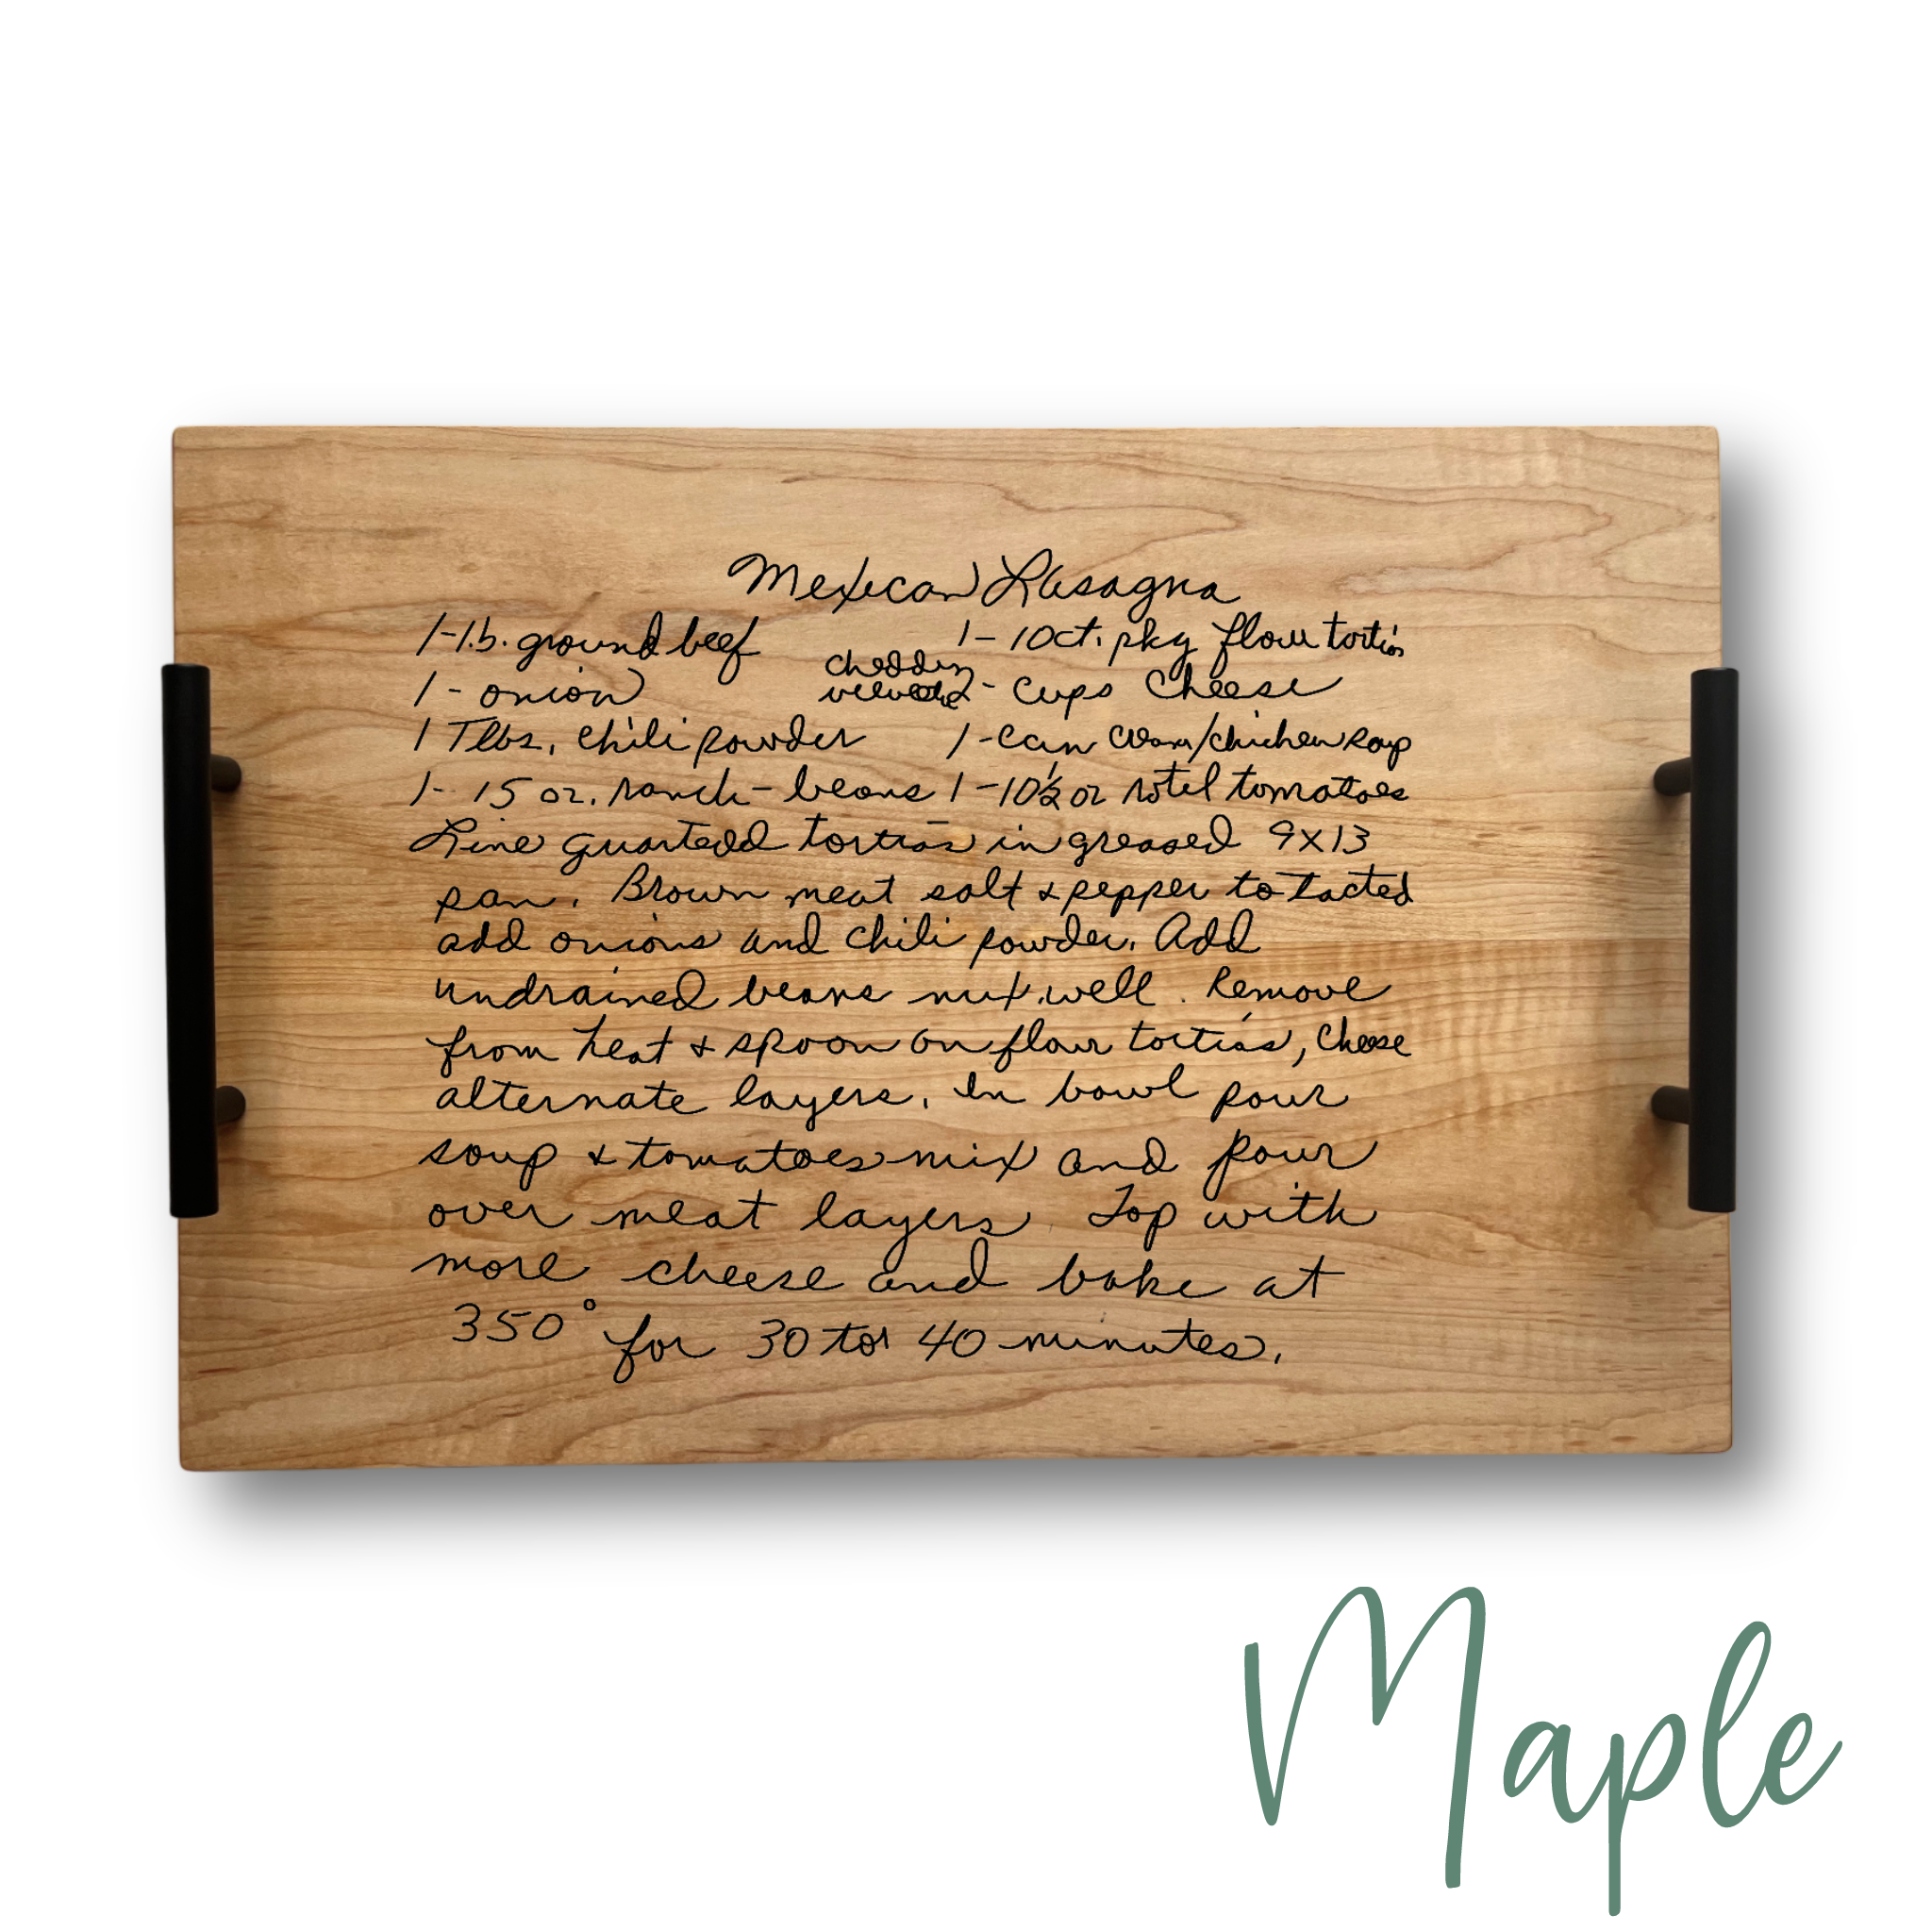 Mexican Lasagna
1-lb. ground beef 1- 10ct. pkg flour tortias
cheddar
1- onion velveeta 2- cups cheese
1 Tlbs. chili powder 1-can cream/chicken soup
1- 15 oz. ranch-beans 1-10½ oz rotel tomatoes
Line quartedd tortias in greased 9x13
pan. Brown meat salt & pepper to tasted
add onions and chili powder. Add
undrained beans mix well. Remove
from heat & spoon on flour tortias, cheese
alternate layers. In bowl pour
soup & tomatoes mix and pour
over meat layers Top with
more cheese and bake at
350° for 30 to 40 minutes.
Maple